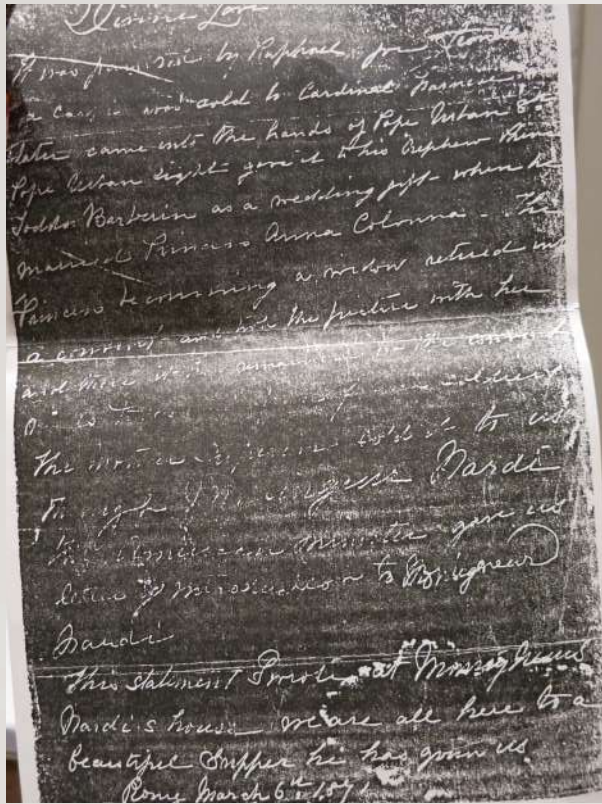 Divine Love
It was painted by Raphael for
a Card it was sold to Cardinal Farnese
later came into the hands of Pope Urban 8th
Pope Urban Eight gave it to his nephew
Taddio Barberin as a wedding gift when he
married Princess Anna Colonna - The
Princess becomming a widow retired into
a convent and took the picture with her
and there it remained
the mother Superior sold it to us
through Monsigneur Nardi
the American Minister gave us
letter of introduction to Monsigneur
Nardi
This statement I wrote at Monsigneurs
Nardi's house we are all here to a
beautiful Supper he has given us.
Rome March 6th 1871